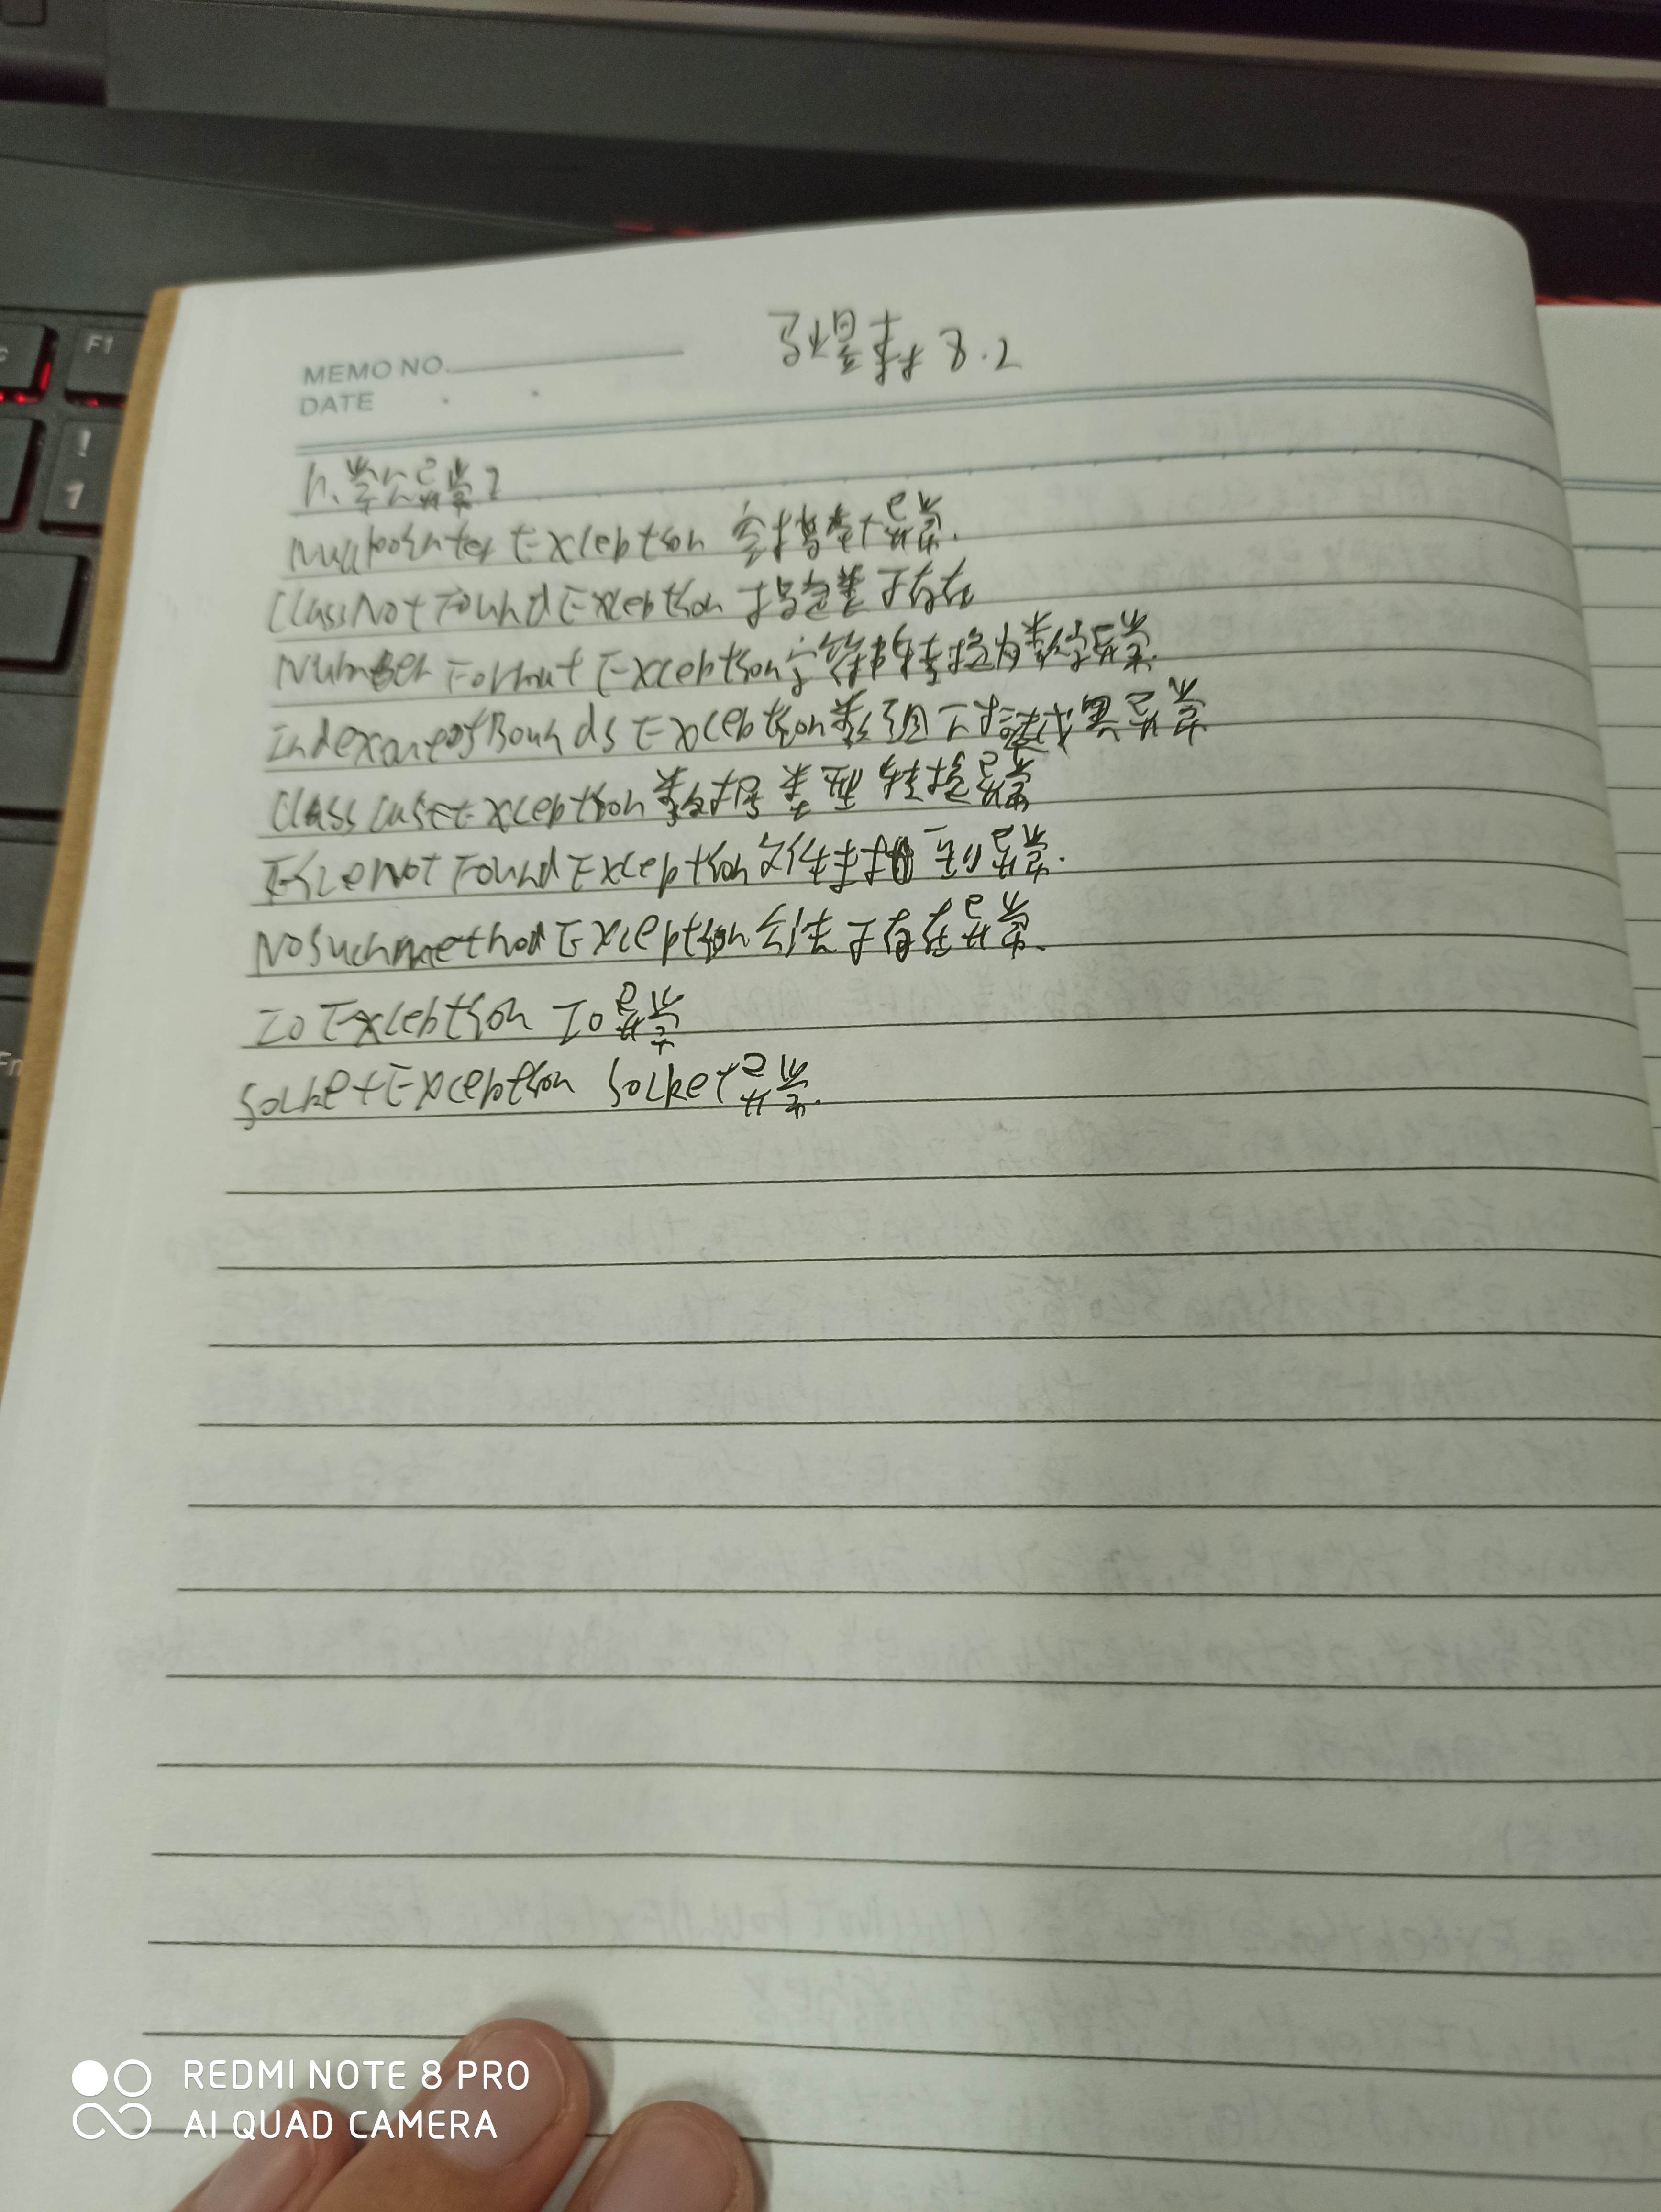 F1
!
1
Fn
MEMO NO.
DATE
8.2
11、常见异常?
NullPointerException 空指针异常.
ClassNotFoundException 指定类不存在
NumberFormatException 字符串转换为数字异常.
IndexOutOfBoundsException 数组下标越界异常
ClassCastException 数据类型转换异常
FileNotFoundException 文件未找到异常.
NoSuchMethodException 方法不存在异常.
IOException IO异常
SocketException Socket异常.
REDMI NOTE 8 PRO
AI QUAD CAMERA